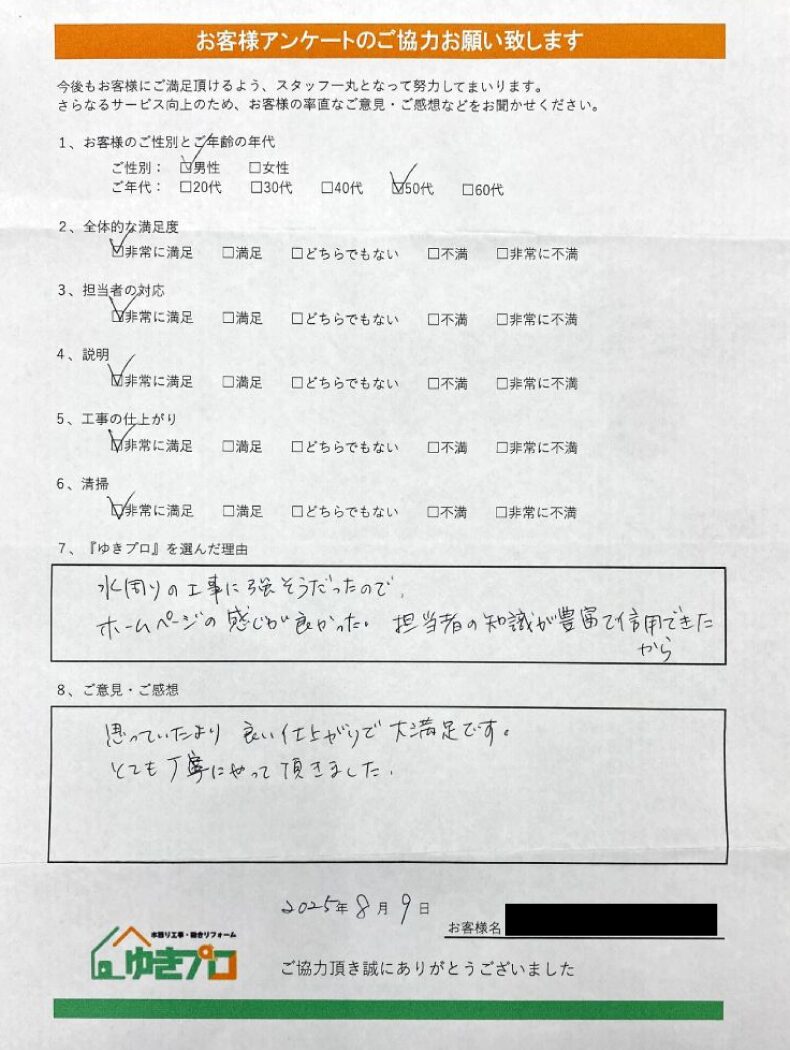 お客様アンケートのご協力お願い致します
今後もお客様にご満足頂けるよう、スタッフ一丸となって努力してまいります。
さらなるサービス向上のため、お客様の率直なご意見・ご感想などをお聞かせください。
1、お客様のご性別とご年齢の年代
ご性別： ☑男性 □女性
ご年代： □20代 □30代 □40代 ☑50代 □60代
2、全体的な満足度
☑非常に満足 □満足 □どちらでもない □不満 □非常に不満
3、担当者の対応
☑非常に満足 □満足 □どちらでもない □不満 □非常に不満
4、説明
☑非常に満足 □満足 □どちらでもない □不満 □非常に不満
5、工事の仕上がり
☑非常に満足 □満足 □どちらでもない □不満 □非常に不満
6、清掃
☑非常に満足 □満足 □どちらでもない □不満 □非常に不満
7、『ゆきプロ』を選んだ理由
水周りの工事に強そうだったので、
ホームページの感じが良かった。担当者の知識が豊富で信用できた
から
8、ご意見・ご感想
思っていたより良い仕上がりで大満足です。
とても丁寧にやって頂きました。
2025年8月9日
お客様名
水回り工事・総合リフォーム
ゆきプロ
ご協力頂き誠にありがとうございました